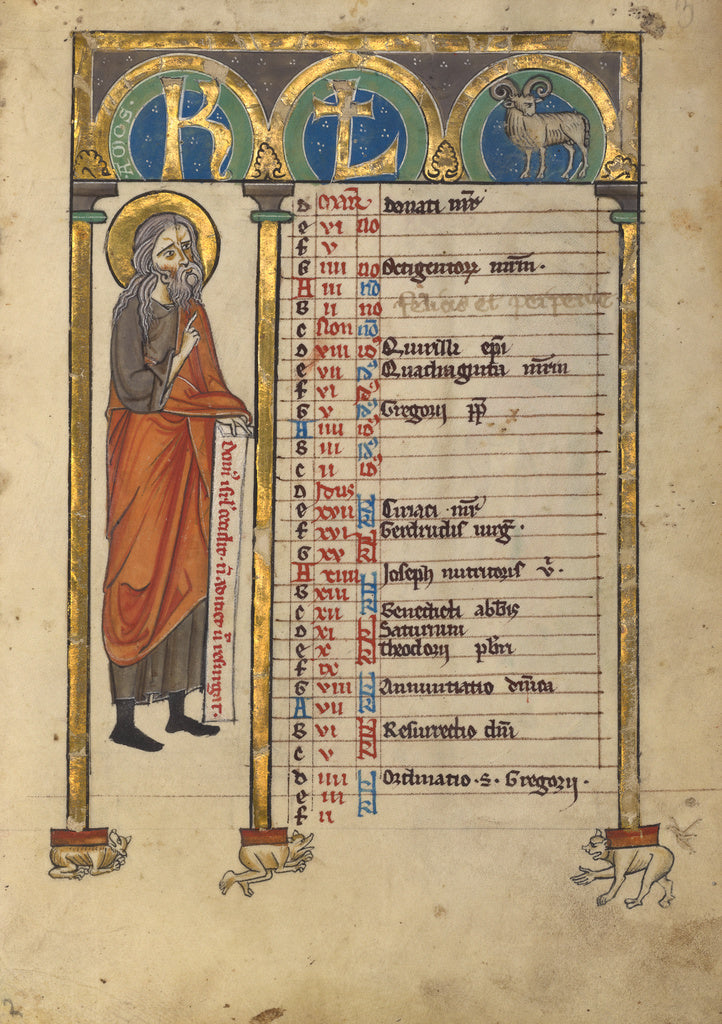 AMOS.
KL
d Mar̄ Donati mr̄
e vi no
f v
g iiii no
A iii no
b ii no felicis et perpetue
c non no
d viii id'
e vii id' Quadraginta mr̄m
f vi id'
g v id' Gregorii pp̄
A iiii id'
b iii id'
c ii id'
d Idus
e xvii kl Ciriaci mr̄
f xvi kl Gerdrudis uirḡ.
g xv kl
A xiiii kl Joseph nutritoris
b xiii kl
c xii kl Benedicti abb̄is
d xi kl Saturnini
e x kl Theodori pb̄ri
f ix kl
g viii kl Annuntiatio dn̄ica
A vii kl
b vi kl Resurrectio dn̄i
c v kl
d iiii kl Ordinatio . s . Gregorii .
e iii kl
f ii kl
dom' isrl' cecidit . n̄ adiciet ut resurgat .